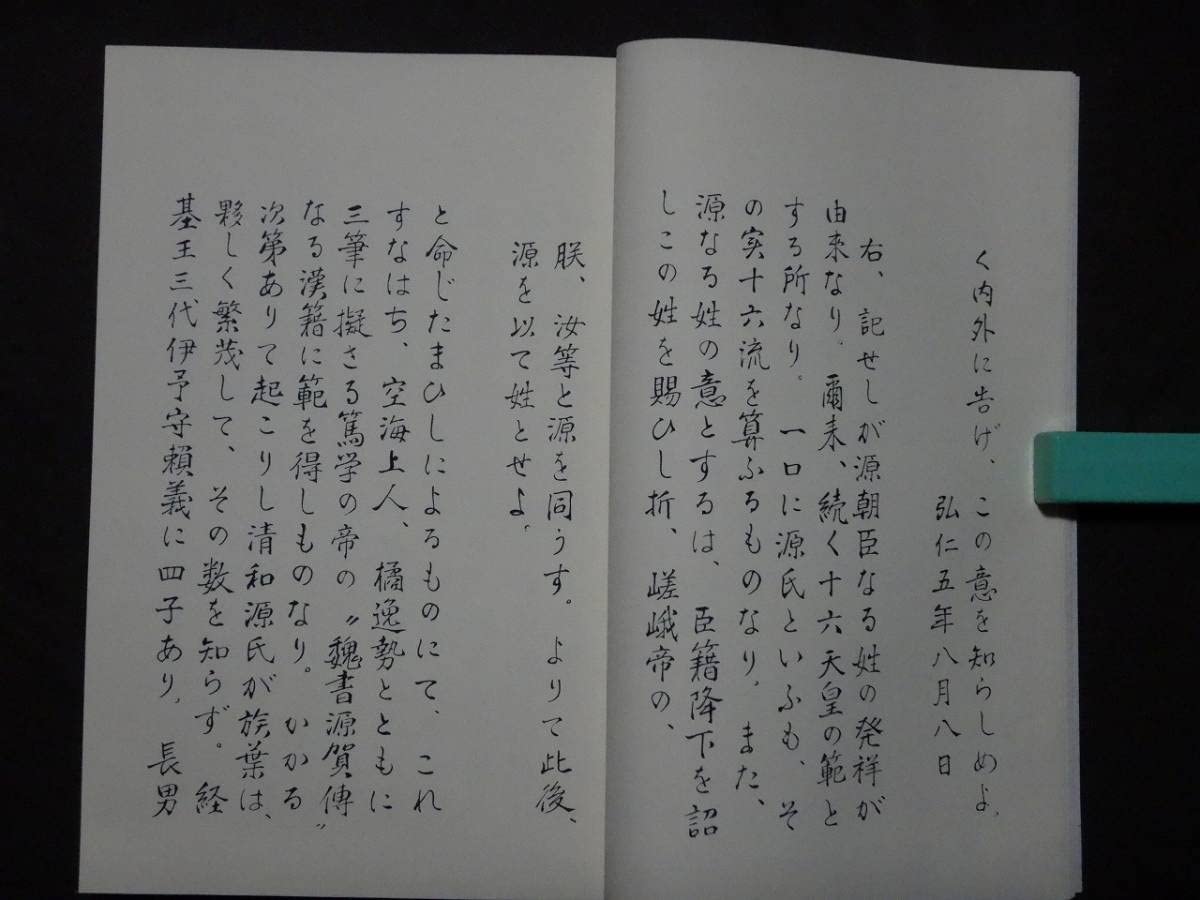 く内外に告げ、この意を知らしめよ。
弘仁五年八月八日
右、記せしが源朝臣なる姓の発祥が
由来なり。爾来、続く十六天皇の範と
する所なり。一口に源氏といふも、そ
の実十六流を算ふるものなり。また、
源なる姓の意とするは、臣籍降下を詔
しこの姓を賜ひし折、嵯峨帝の、
朕、汝等と源を同うす。よりて此後、
源を以て姓とせよ。
と命じたまひしによるものにて、これ
すなはち、空海上人、橘逸勢とともに
三筆に擬さる篤学の帝の〝魏書源賀傳〟
なる漢籍に範を得しものなり。かかる
次第ありて起こりし清和源氏が族葉は、
夥しく繁茂して、その数を知らず。経
基王三代伊予守頼義に四子あり。長男